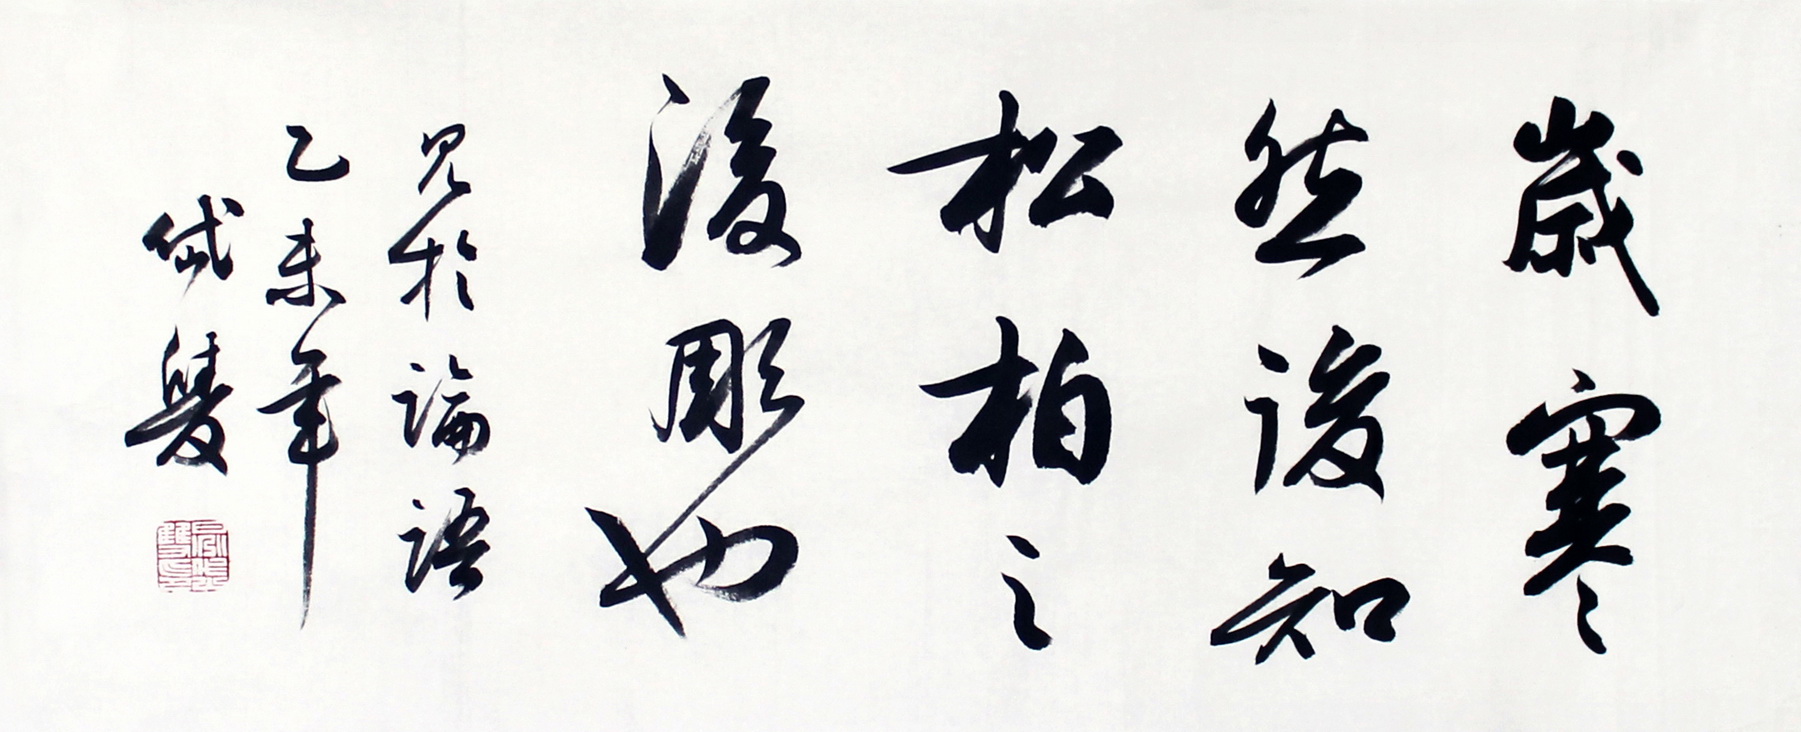 歲寒
然後知
松柏之
後彫也
見於論語
乙未年
岱雙